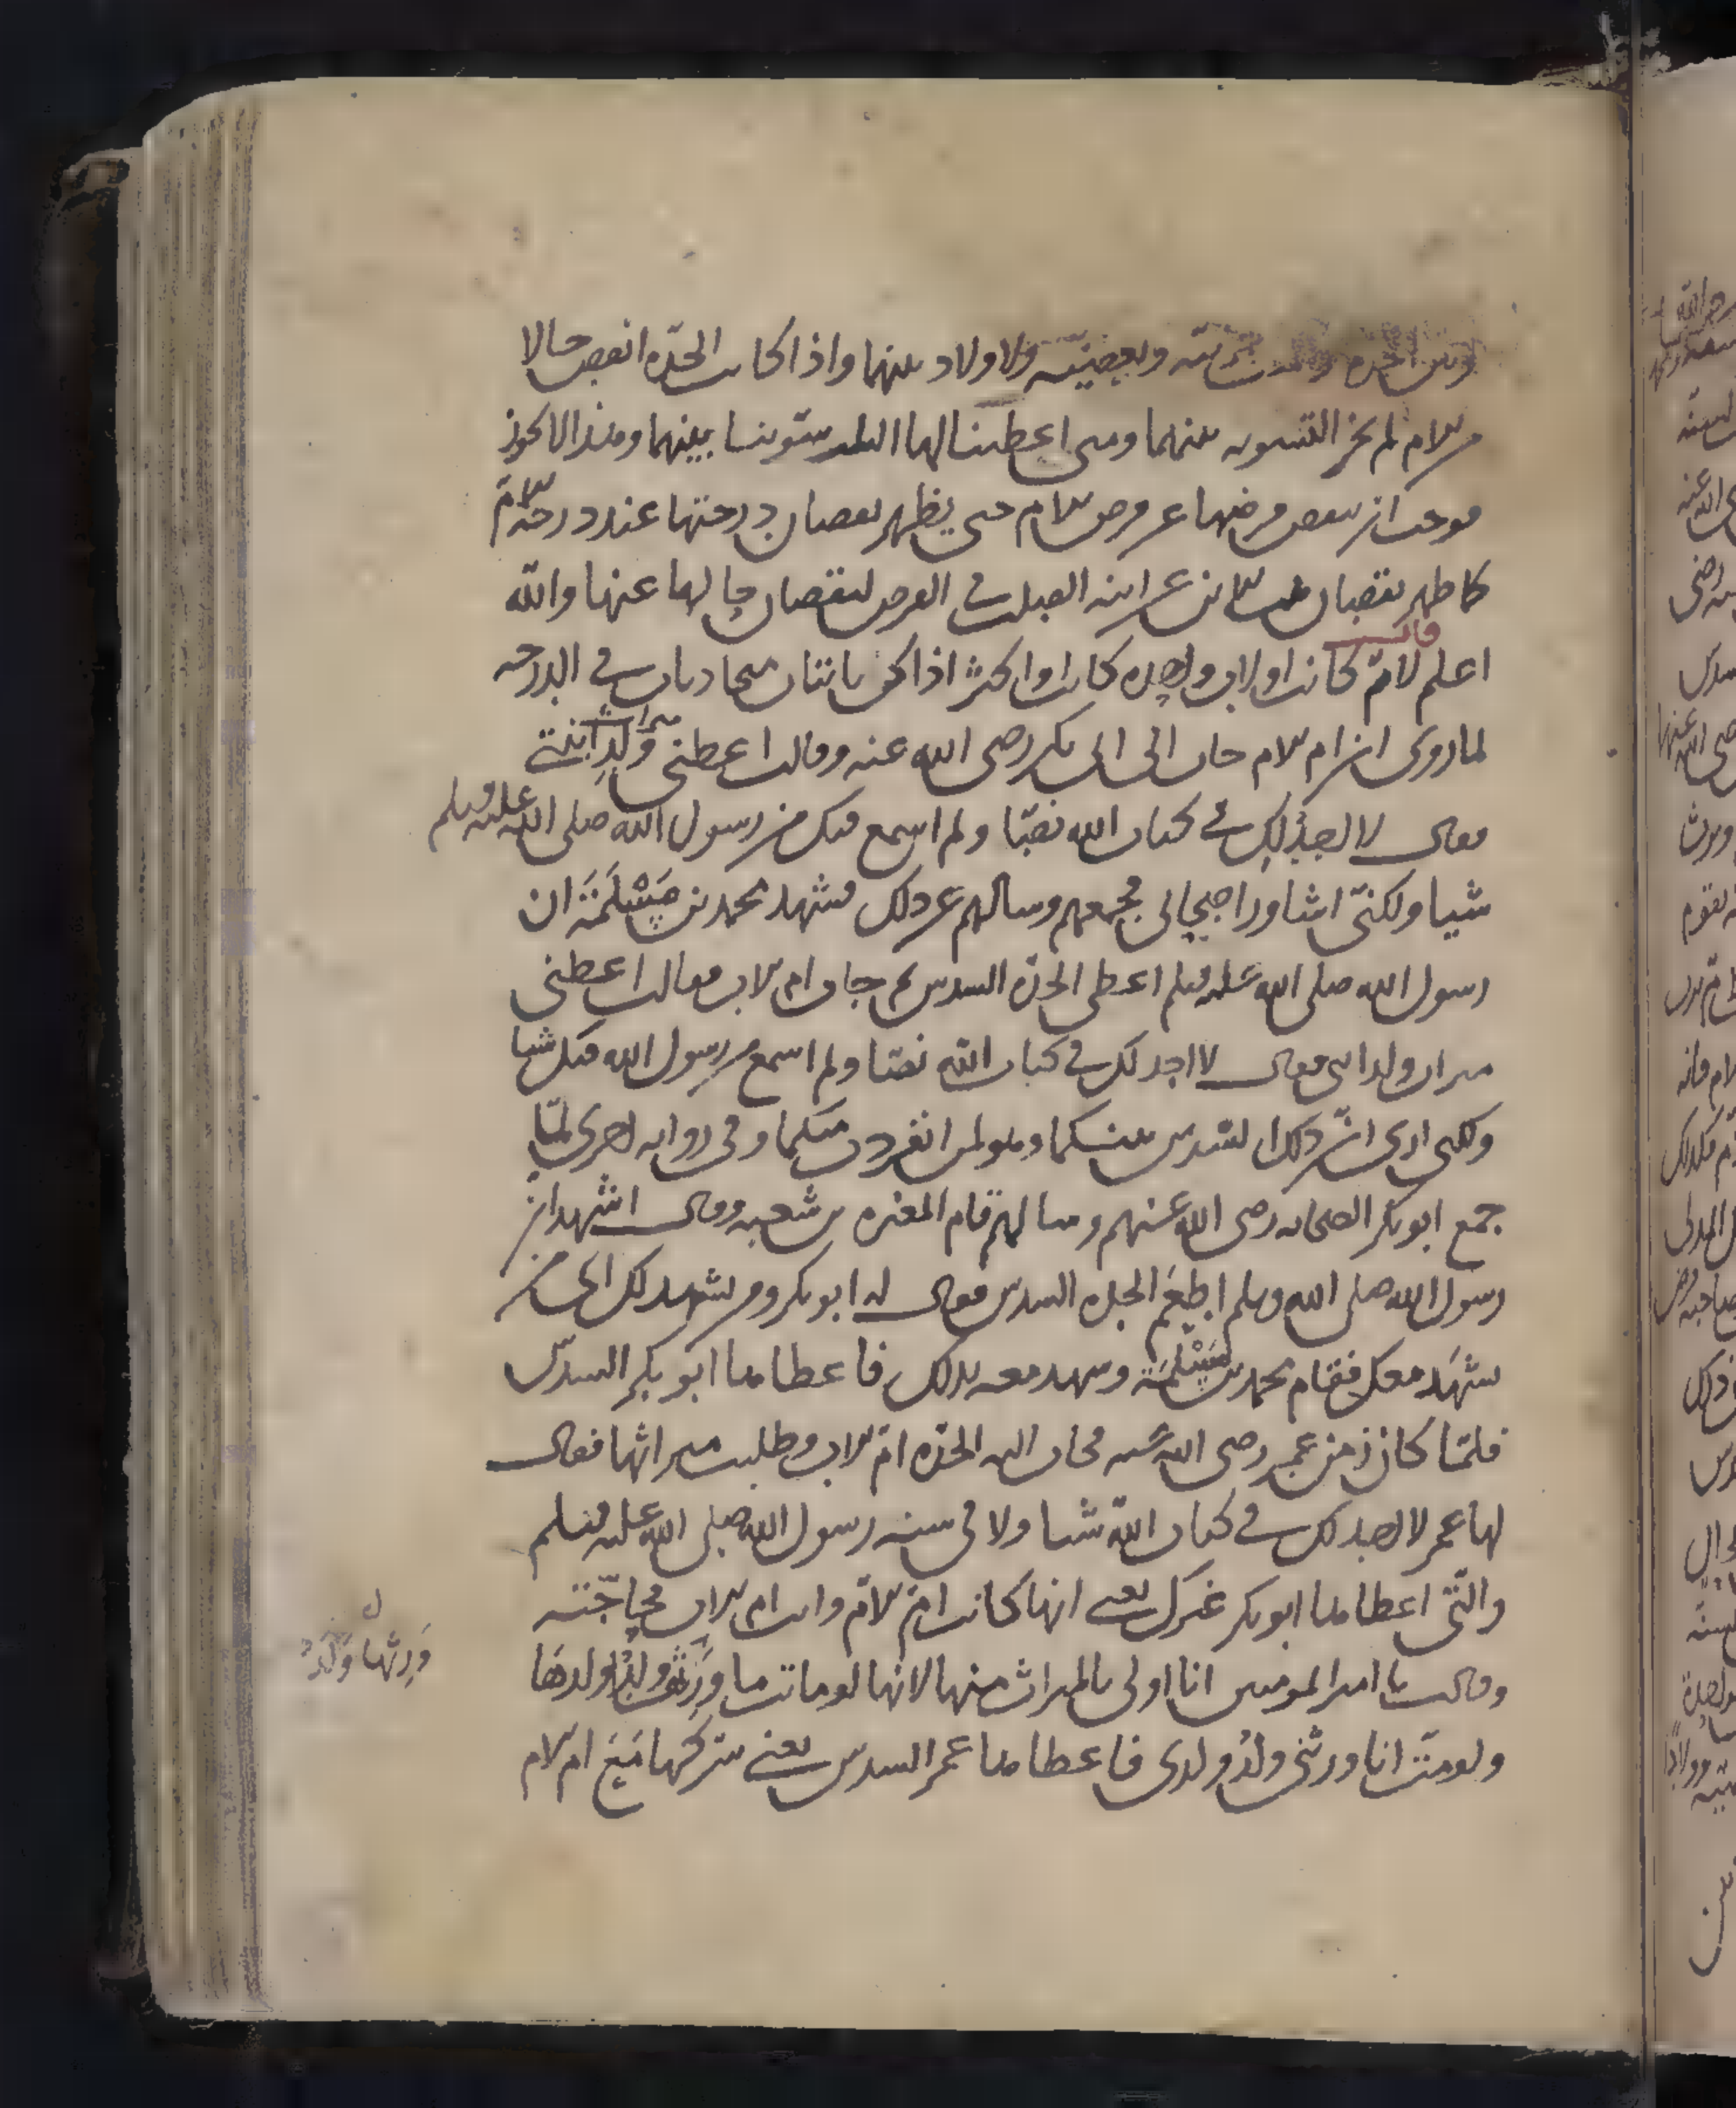 وبين الجدة وبعضيته ولا ولاد بينهما واذا كانت الجدة انقص حالا
من الام لم يجز التسوية بينهما ومتى اعطينا لها الثلث سوينا بينهما وهذا لا يجوز
فوجب ان ينقص فرضها عن فرض الام حتى يظهر نقصان درجتها عند درجة الام
كما ظهر نقصان بنت الابن عن ابنة الصلب في الفرض لنقصان حالها عنها والله
اعلم قال لام كانت او لاب واحدة كانت او اكثر اذا كن ثابتات متحاذيات في الدرجة
لما روى ان ام الام جات الى ابى بكر رضى الله عنه وقالت اعطنى ميراث ولد ابنتى
فقال لا اجد لك في كتاب الله نصا ولم اسمع فيك من رسول الله صلى الله عليه وسلم
شيا ولكنى اشاور اصحابى فجمعهم وسالهم عن ذلك فشهد محمد بن مسلمة ان
رسول الله صلى الله عليه وسلم اعطى الجدة السدس ثم جات ام الاب فقالت اعطنى
ميراث ولد ابنى فقال لا اجد لك في كتاب الله نصا ولم اسمع من رسول الله فيك شيا
ولكنى ارى ان ذلك السدس بينكما وهو لمن انفردت منكما وفى رواية اخرى لما
جمع ابو بكر الصحابة رضى الله عنهم وسالهم قام المغيرة بن شعبة وقال اشهد ان
رسول الله صلى الله وسلم اطعم الجدة السدس فقال له ابو بكر ومن يشهد لك اى من
يشهد معك فقام محمد بن مسلمة وشهد معه بذلك فاعطاها ابو بكر السدس
فلما كان زمن عمر رضى الله عنه فجات اليه الجدة ام الاب وطلبت ميراثها فقال
لها عمر لا اجد لك في كتاب الله شيا ولا فى سنة رسول الله صلى الله عليه وسلم
والتى اعطاها ابو بكر غيرك يعنى انها كانت ام الام وانت ام الاب فحاجته
وقالت يا امير المومنين انا اولى بالميراث منها لانها لو ماتت ما ورثها ولد ولدها
ولو مت انا ورثنى ولد ولدى فاعطاها عمر السدس يعنى شركها مع ام الام
ورثها ولد